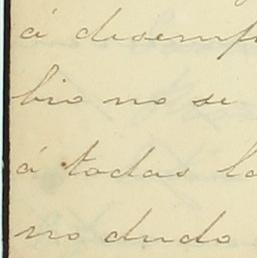 á desemp
bio no se
á todas la
no dudo